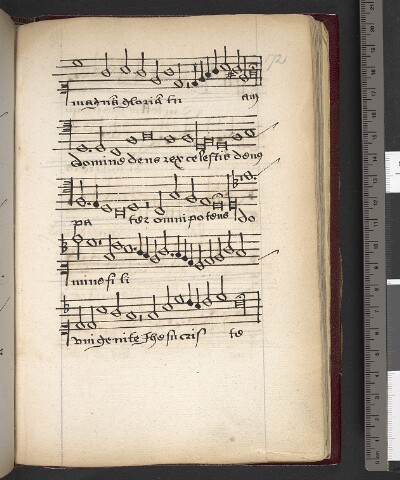 172
magnā gloriā tu am
domine deus rex celestis deus
pa ter omnipotens do
mine fi li
unigenite Jhesu cris te